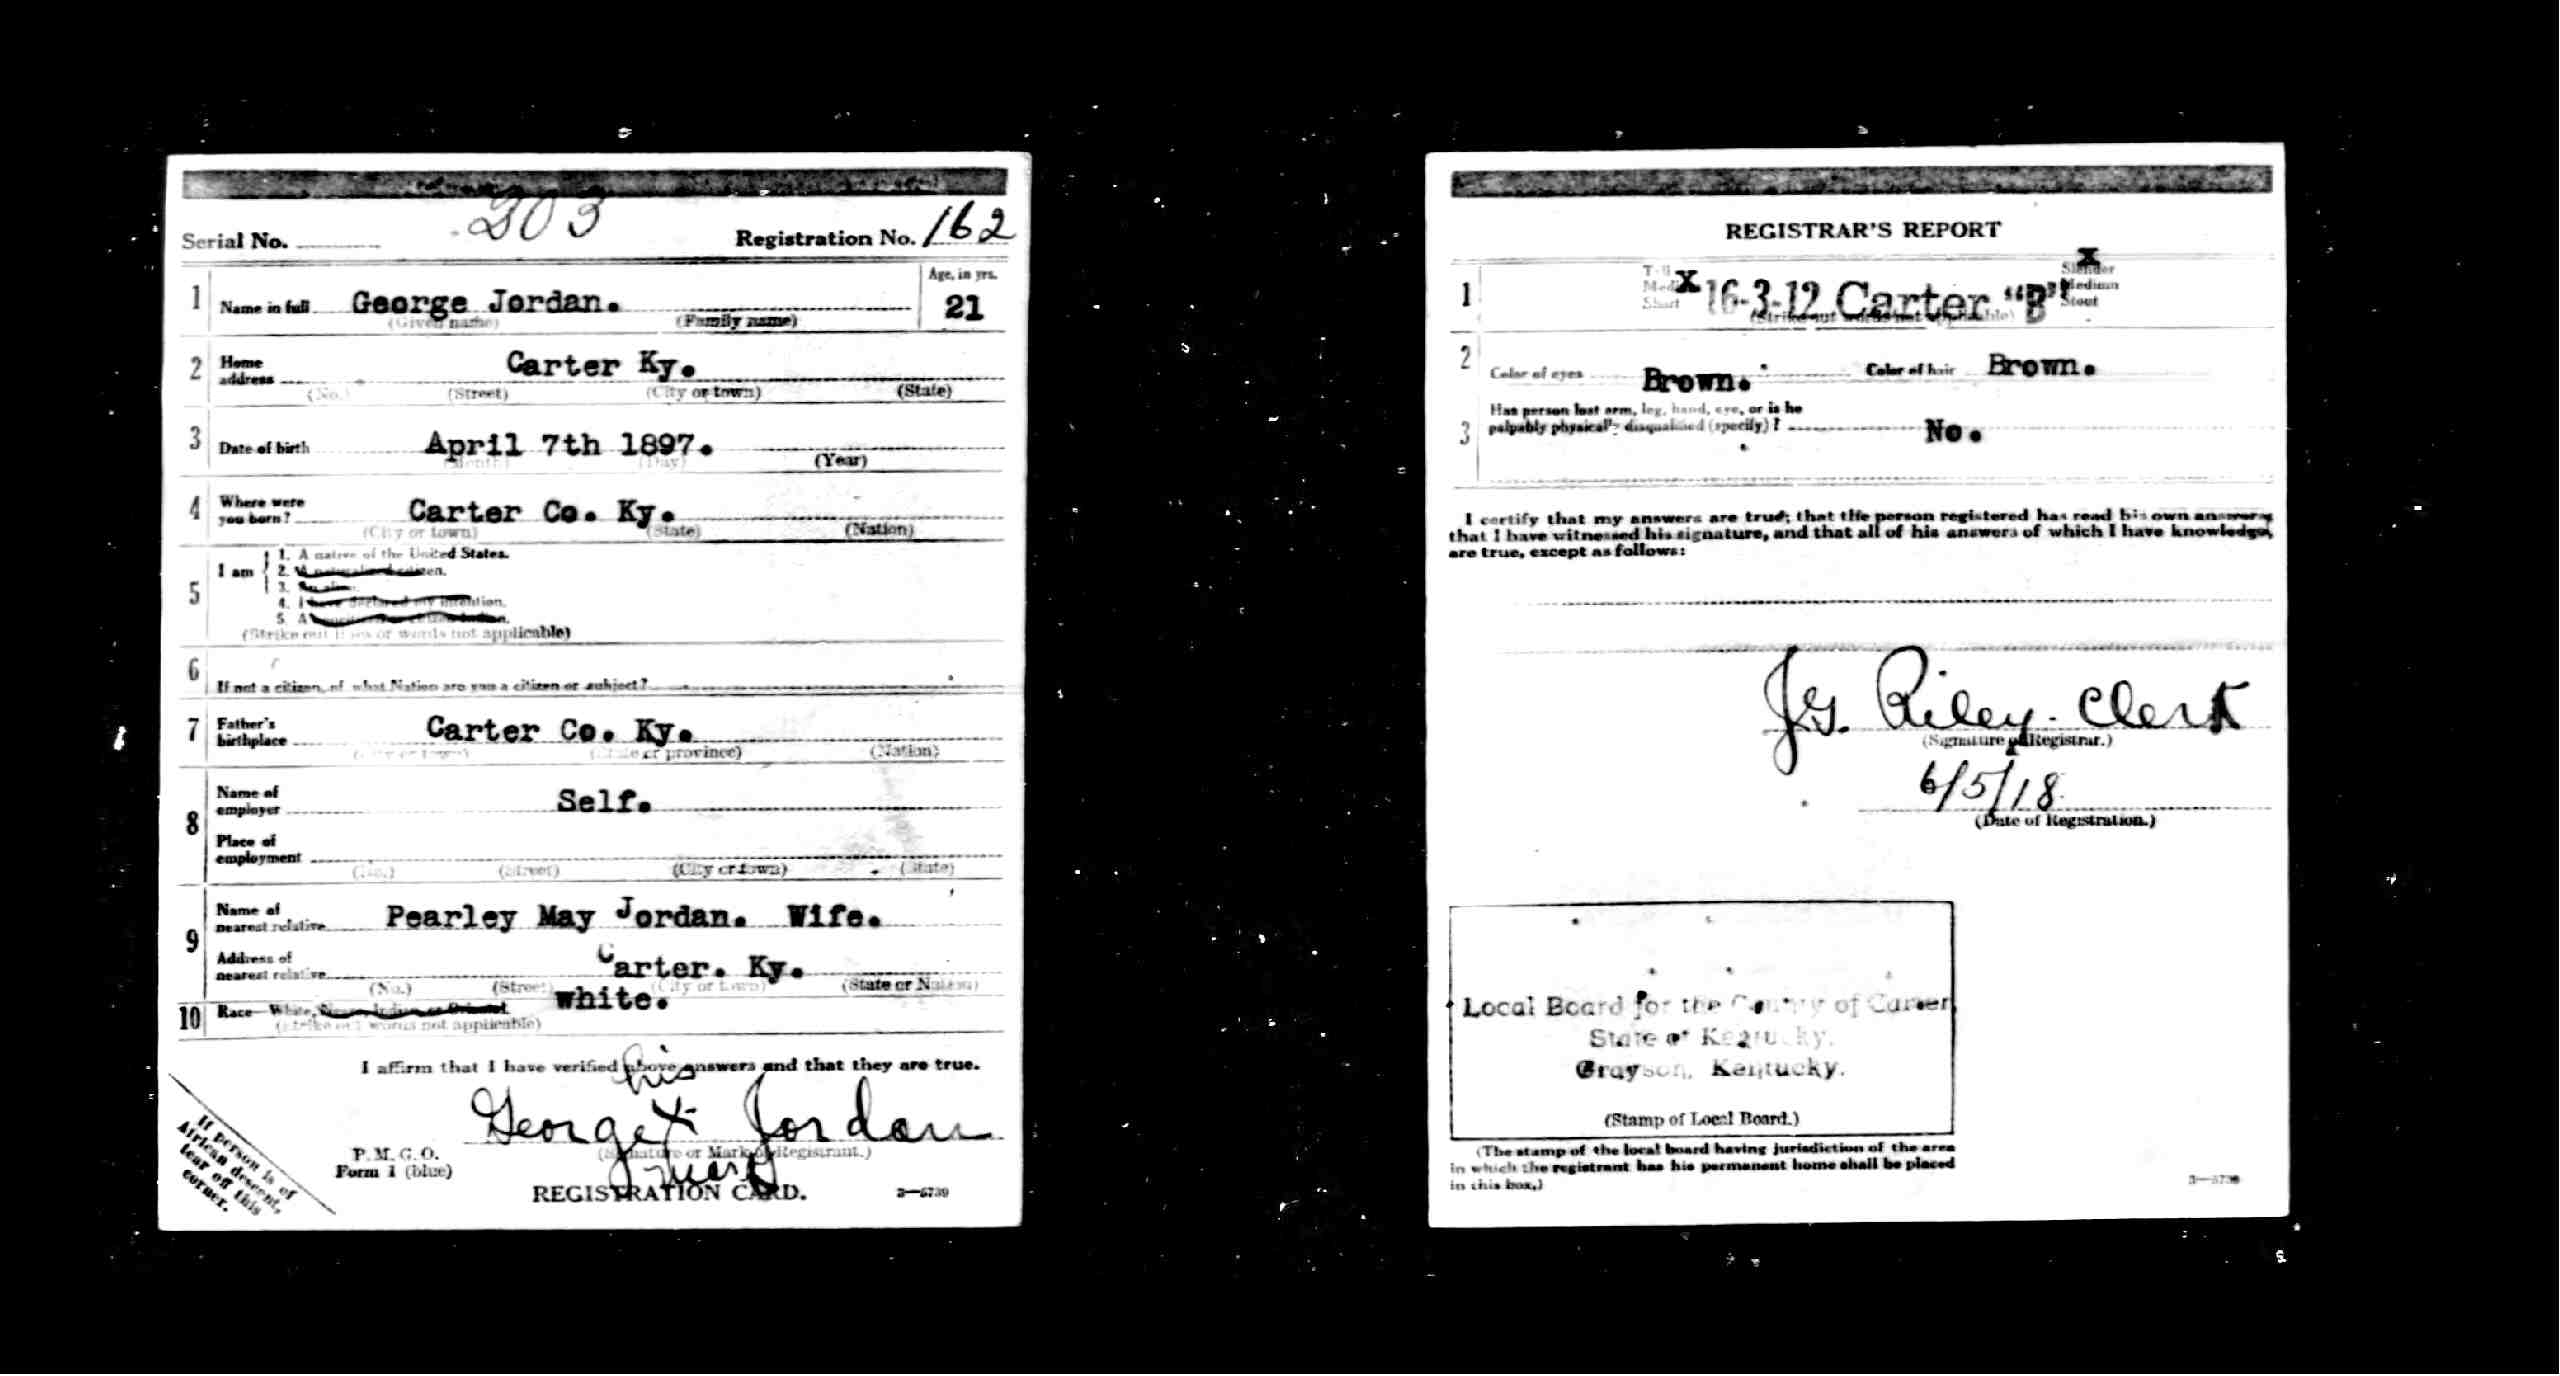 203
Serial No. Registration No. 162
1 Name in full George Jordan. Age, in yrs. 21
(Given name) (Family name)
2 Home address Carter Ky.
(No.) (Street) (City or town) (State)
3 Date of birth April 7th 1897.
(Month) (Day) (Year)
4 Where were you born? Carter Co. Ky.
(City or town) (State) (Nation)
5 I am
1. A native of the United States.
2. A naturalized citizen.
3. An alien.
4. I have declared my intention.
5. A
(Strike out lines or words not applicable)
6 If not a citizen, of what Nation are you a citizen or subject?
7 Father's birthplace Carter Co. Ky.
(City or town) (State or province) (Nation)
8 Name of employer Self.
Place of employment
(No.) (Street) (City or town) (State)
9 Name of nearest relative Pearley May Jordan. Wife.
Address of nearest relative Carter. Ky.
(No.) (Street) (City or town) (State or Nation)
10 Race—White, Negro, Indian, or Oriental. white.
(Strike out words not applicable)
I affirm that I have verified above answers and that they are true.
his
George X Jordan
(Signature or Mark of Registrant.)
mark
P. M. G. O.
Form 1 (blue)
REGISTRATION CARD. 3—5739
If person is of
African descent,
tear off this
corner.
REGISTRAR'S REPORT
1 Tall X Slender
Medium X 16-3-12 Carter "B" Medium
Short Stout
(Strike out words not applicable)
2 Color of eyes Brown. Color of hair Brown.
3 Has person lost arm, leg, hand, eye, or is he
palpably physically disqualified (specify)? No.
I certify that my answers are true; that the person registered has read his own answers,
that I have witnessed his signature, and that all of his answers of which I have knowledge,
are true, except as follows:
J.G. Riley. Clerk
(Signature of Registrar.)
6/5/18
(Date of Registration.)
Local Board for the County of Carter,
State of Kentucky.
Grayson, Kentucky.
(Stamp of Local Board.)
(The stamp of the local board having jurisdiction of the area
in which the registrant has his permanent home shall be placed
in this box.)
3—5739